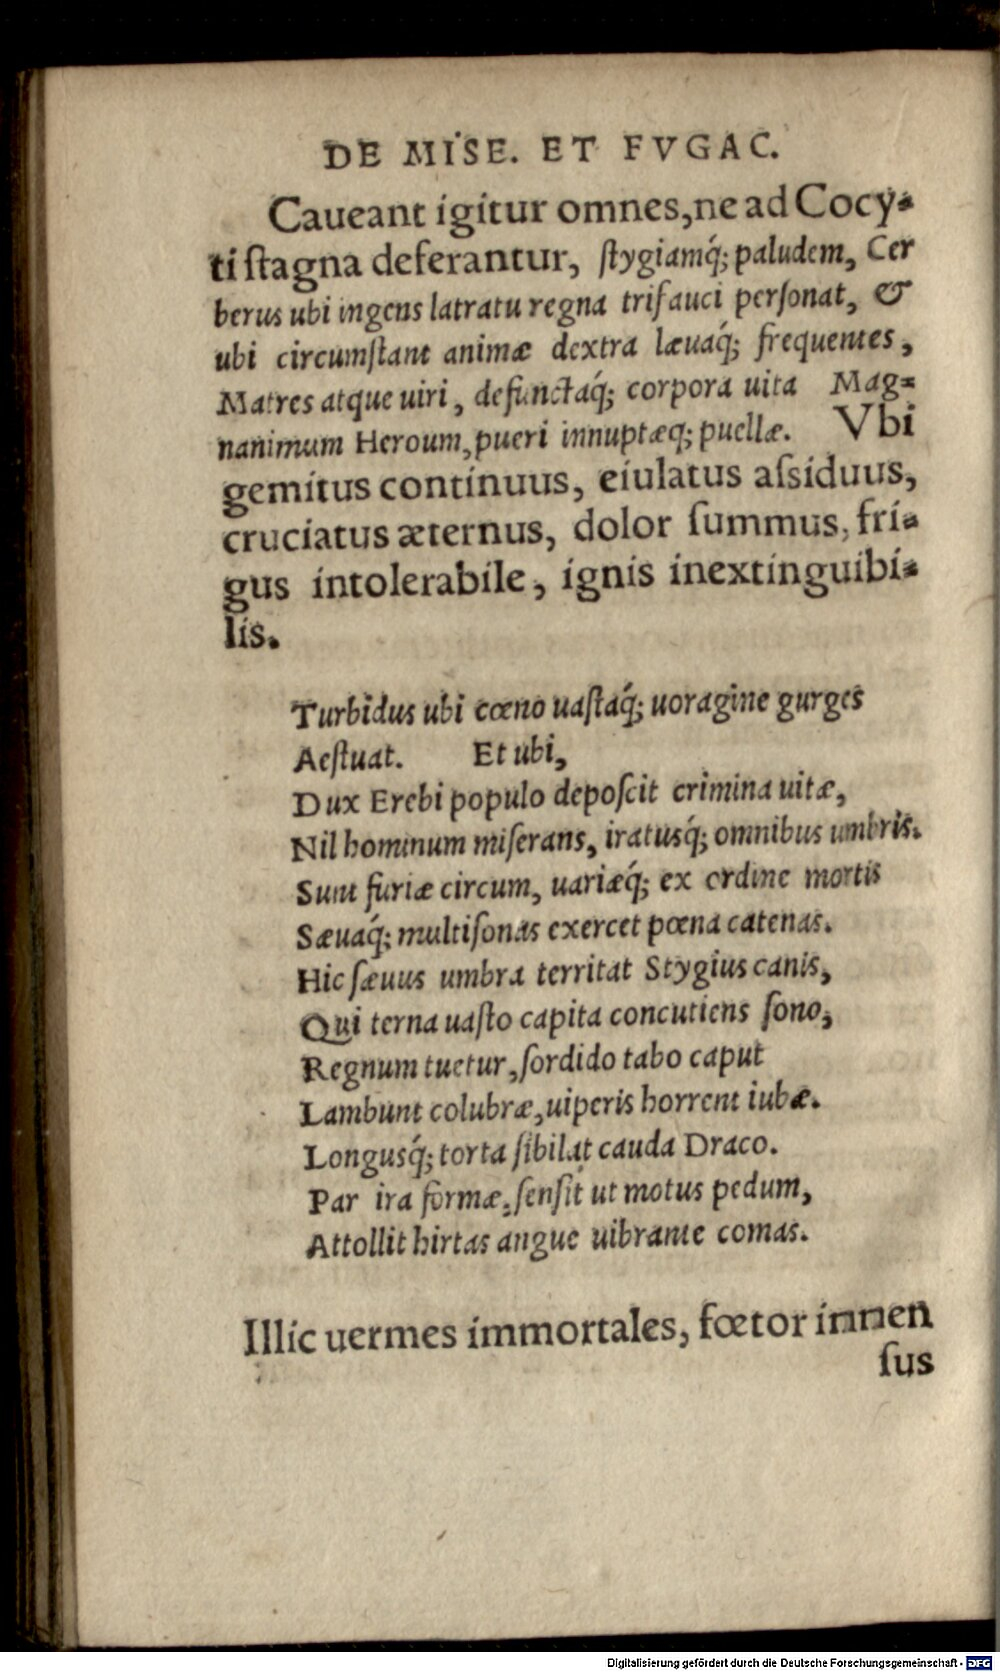 DE MISE. ET FVGAC.
Caueant igitur omnes, ne ad Cocy-
ti ſtagna deferantur, ſtygiamq́; paludem, Cer
berus ubi ingens latratu regna trifauci perſonat, &
ubi circumſtant animæ dextra læuaq́; frequentes,
Matres atque uiri, defunctaq́; corpora uita Mag-
nanimum Heroum, pueri innuptæq; puellæ. Vbi
gemitus continuus, eiulatus aſsiduus,
cruciatus æternus, dolor ſummus, fri-
gus intolerabile, ignis inextinguibi-
lis.
Turbidus ubi cœno uaſtaq́; uoragine gurges
Aeſtuat. Et ubi,
Dux Erebi populo depoſcit crimina uitæ,
Nil hominum miſerans, iratusq́; omnibus umbris.
Sunt furiæ circum, uariæq́; ex ordine mortis
Sæuaq́; multiſonas exercet pœna catenas.
Hic ſæuus umbra territat Stygius canis,
Qui terna uaſto capita concutiens ſono,
Regnum tuetur, ſordido tabo caput
Lambunt colubræ, uiperis horrent iubæ.
Longusq́; torta ſibilat cauda Draco.
Par ira formæ, ſenſit ut motus pedum,
Attollit hirtas angue uibrante comas.
Illic uermes immortales, fœtor immen
ſus
Digitalisierung gefördert durch die Deutsche Forschungsgemeinschaft - DFG